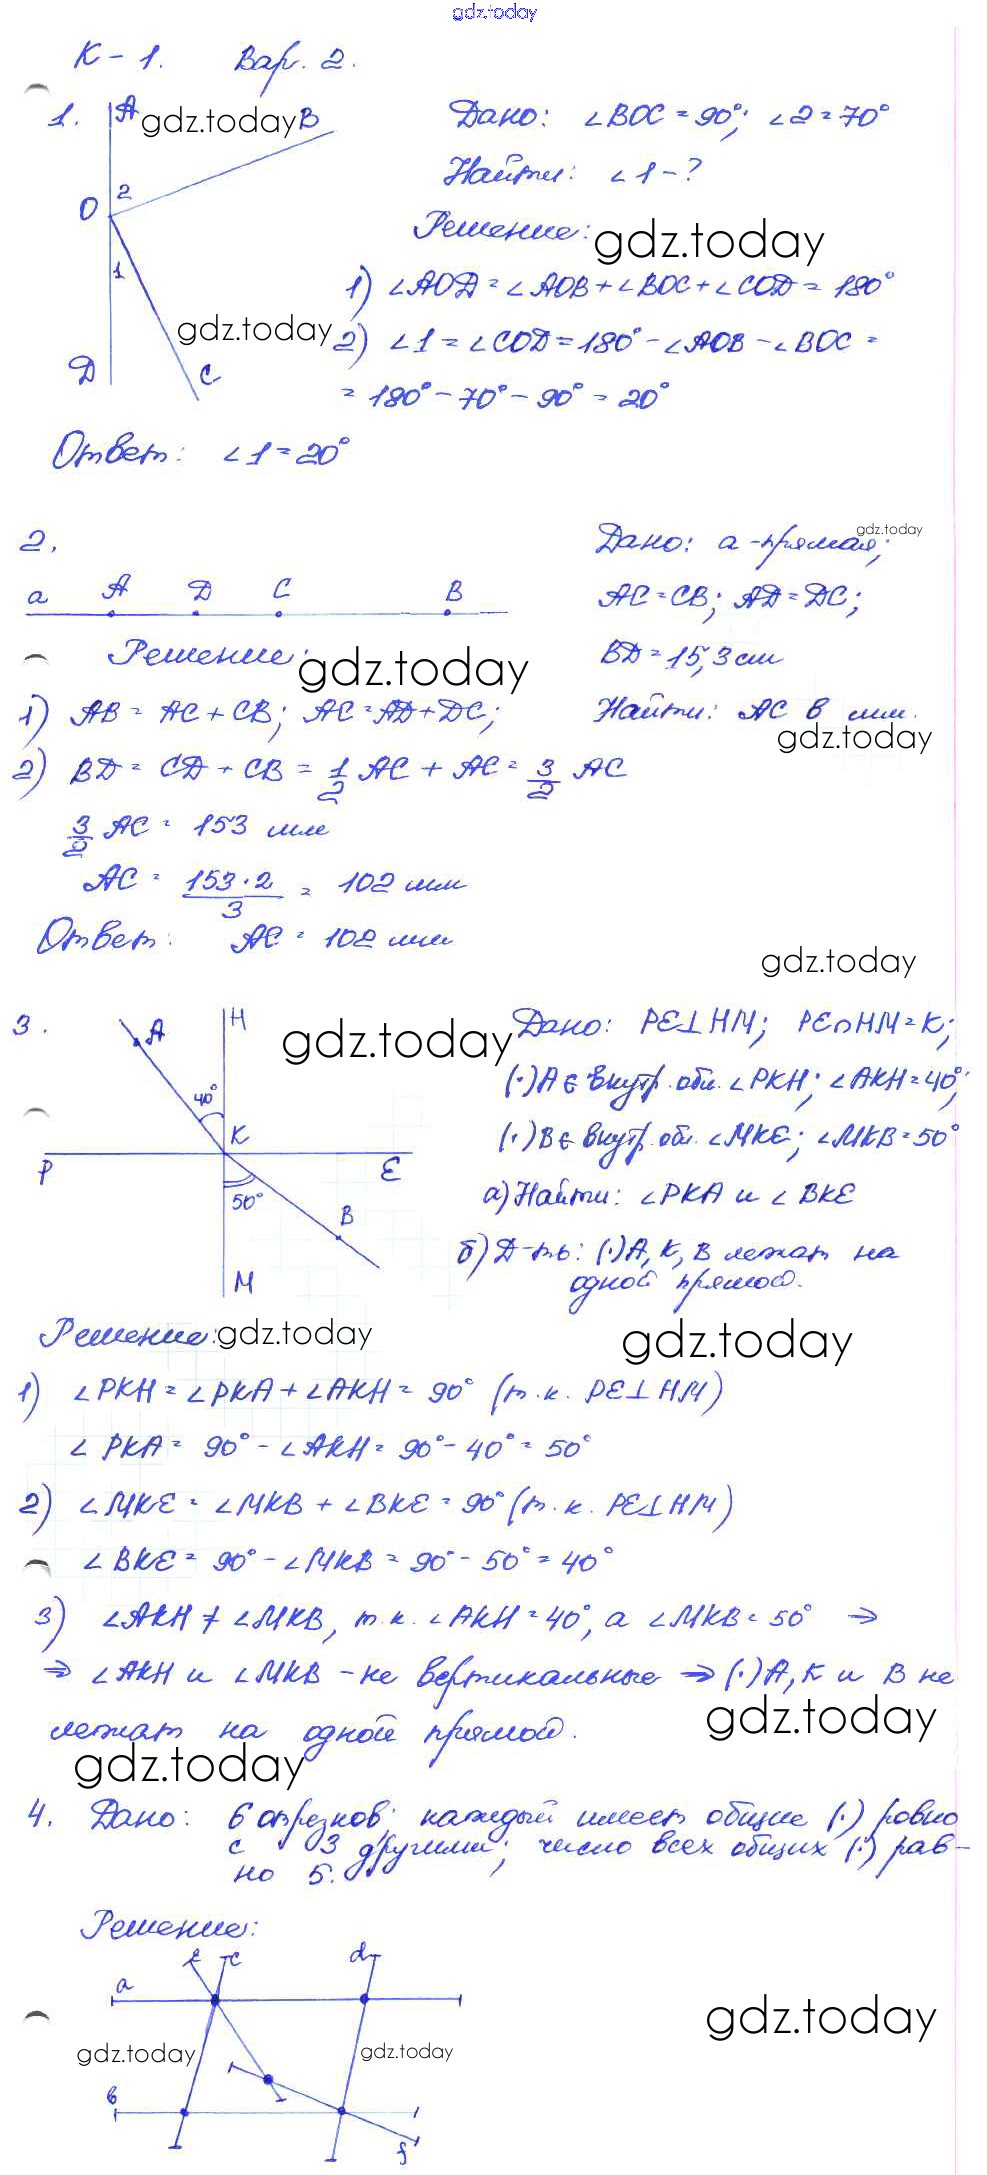 gdz.today
К-1. Вар. 2.
1. A gdz.today B Дано: ∠BOC = 90°; ∠2 = 70°
Найти: ∠1 - ?
O 2 Решение: gdz.today
1 1) ∠AOD = ∠AOB + ∠BOC + ∠COD = 180°
gdz.today 2) ∠1 = ∠COD = 180° - ∠AOB - ∠BOC =
D C = 180° - 70° - 90° = 20°
Ответ: ∠1 = 20°
2. Дано: a - прямая; gdz.today
a A D C B AC = CB; AD = DC;
Решение: gdz.today BD = 15,3 см
1) AB = AC + CB; AC = AD + DC; Найти: AC в мм.
gdz.today
2) BD = CD + CB = 1/2 AC + AC = 3/2 AC
3/2 AC = 153 мм
AC = 153·2/3 = 102 мм
Ответ: AC = 102 мм
gdz.today
3. A H gdz.today Дано: PE⊥HM; PE∩HM = K;
40° (·)A∈ внутр. обл. ∠PKH; ∠AKH = 40°;
K (·)B∈ внутр. обл. ∠MKE; ∠MKB = 50°
P E
50° B а) Найти: ∠PKA и ∠BKE
M б) Д-ть: (·)A, K, B лежат на
одной прямой.
Решение: gdz.today gdz.today
1) ∠PKH = ∠PKA + ∠AKH = 90° (т.к. PE⊥HM)
∠PKA = 90° - ∠AKH = 90° - 40° = 50°
2) ∠MKE = ∠MKB + ∠BKE = 90° (т.к. PE⊥HM)
∠BKE = 90° - ∠MKB = 90° - 50° = 40°
3) ∠AKH ≠ ∠MKB, т.к. ∠AKH = 40°, а ∠MKB = 50° ⇒
⇒ ∠AKH и ∠MKB - не вертикальные ⇒ (·)A, K и B не
лежат на одной прямой. gdz.today
gdz.today
4. Дано: 6 отрезков; каждый имеет общие (·) ровно
с 3 другими; число всех общих (·) рав-
но 5.
Решение:
e c d
a
gdz.today
gdz.today gdz.today
в
f